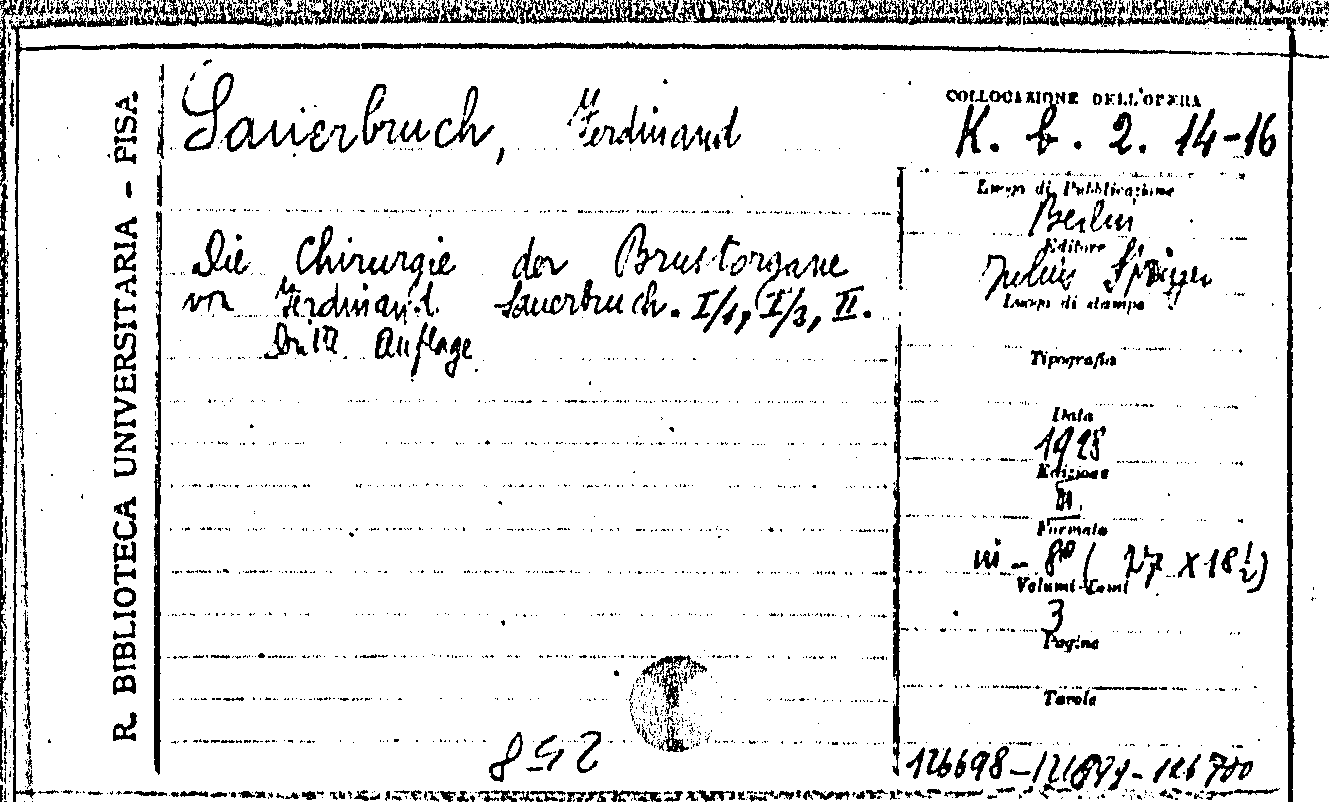 R. BIBLIOTECA UNIVERSITARIA - PISA
Sauerbruch, Ferdinand
Die Chirurgie der Brustorgane
von Ferdinand Sauerbruch. I/1, I/2, II.
Dritte Auflage
COLLOCAZIONE DELL'OPERA
K. b. 2. 14-16
Luogo di Pubblicazione
Berlin
Editore
Julius Springer
Luogo di stampa
Tipografia
Data
1928
Edizione
Formato
in - 8º ( 27 x 18½)
Volumi-Tomi
3
Pagine
Tavole
126698-126699-126700
258